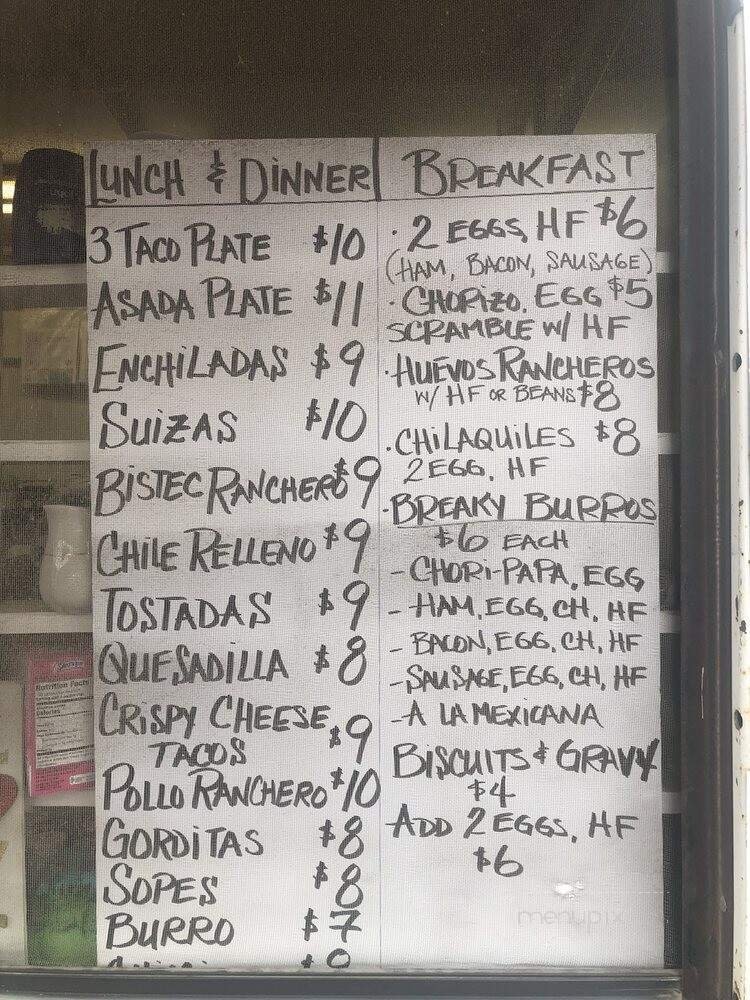 LUNCH & DINNER
3 TACO PLATE $10
ASADA PLATE $11
ENCHILADAS $9
SUIZAS $10
BISTEC RANCHERO $9
CHILE RELLENO $9
TOSTADAS $9
QUESADILLA $8
CRISPY CHEESE
TACOS $9
POLLO RANCHERO $10
GORDITAS $8
SOPES $8
BURRO $7
BREAKFAST
· 2 EGGS, HF $6
(HAM, BACON, SAUSAGE)
· CHORIZO, EGG $5
SCRAMBLE W/ HF
· HUEVOS RANCHEROS
W/ HF OR BEANS $8
· CHILAQUILES $8
2 EGG, HF
· BREAKY BURROS
$6 EACH
- CHORI-PAPA, EGG
- HAM, EGG, CH, HF
- BACON, EGG, CH, HF
- SAUSAGE, EGG, CH, HF
- A LA MEXICANA
BISCUITS & GRAVY
$4
ADD 2 EGGS, HF
$6
Nutrition Facts
menupix